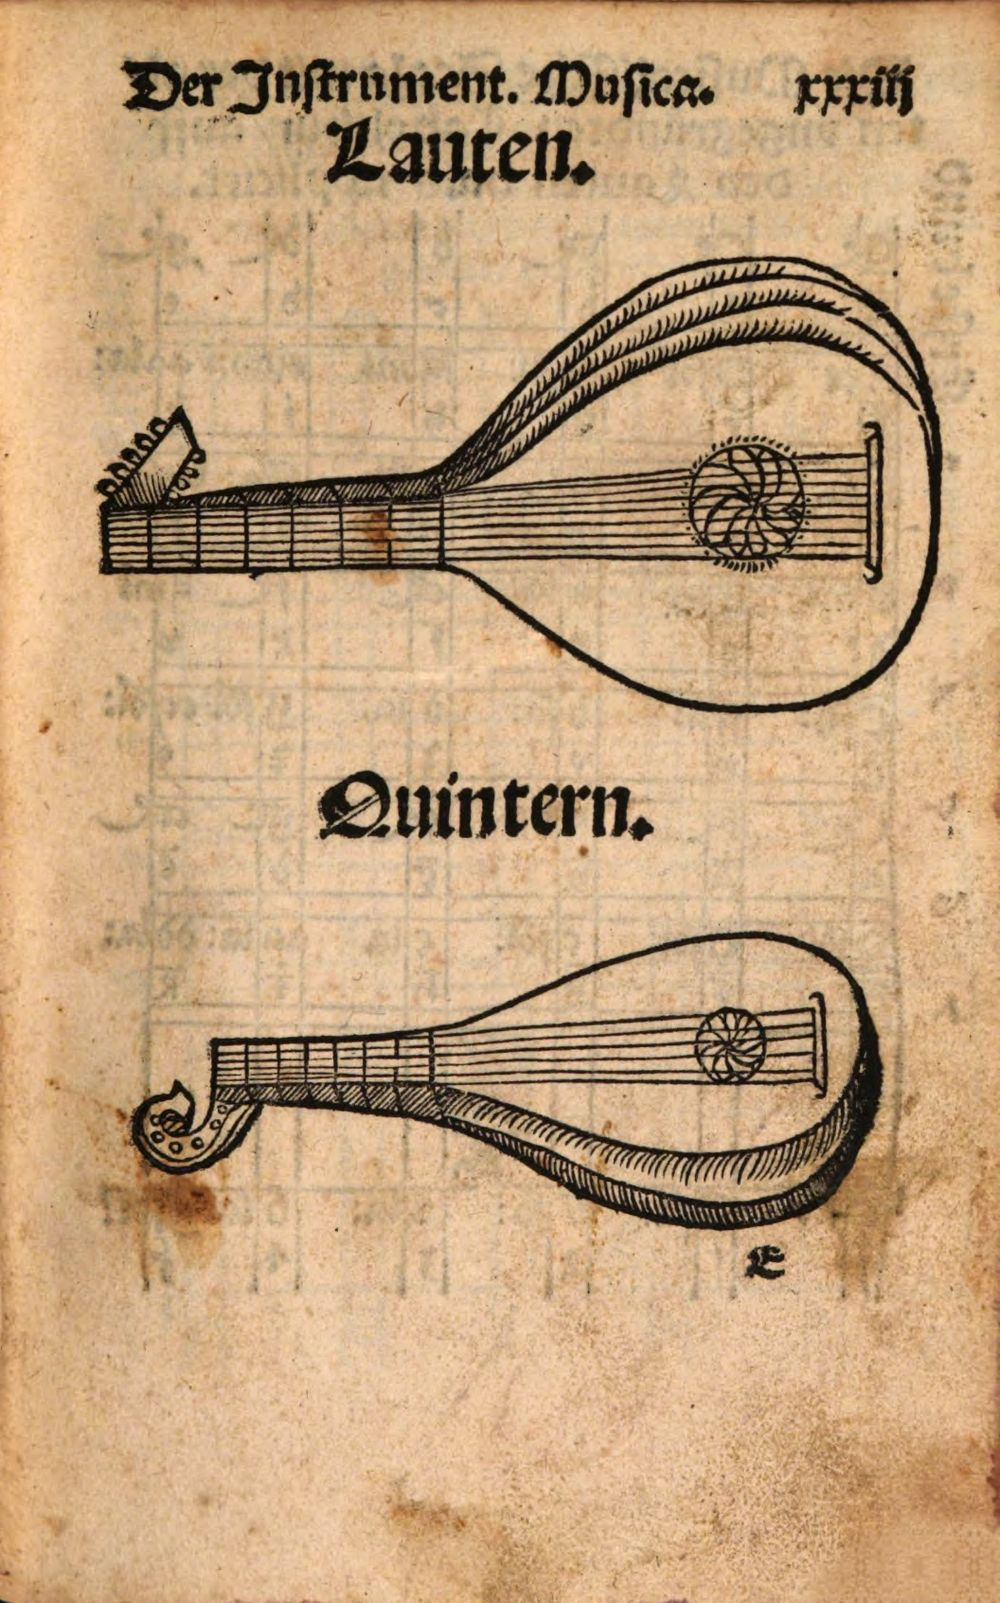 Der Inſtrument. Muſica. xxxiij
Lauten.
Quintern.
E